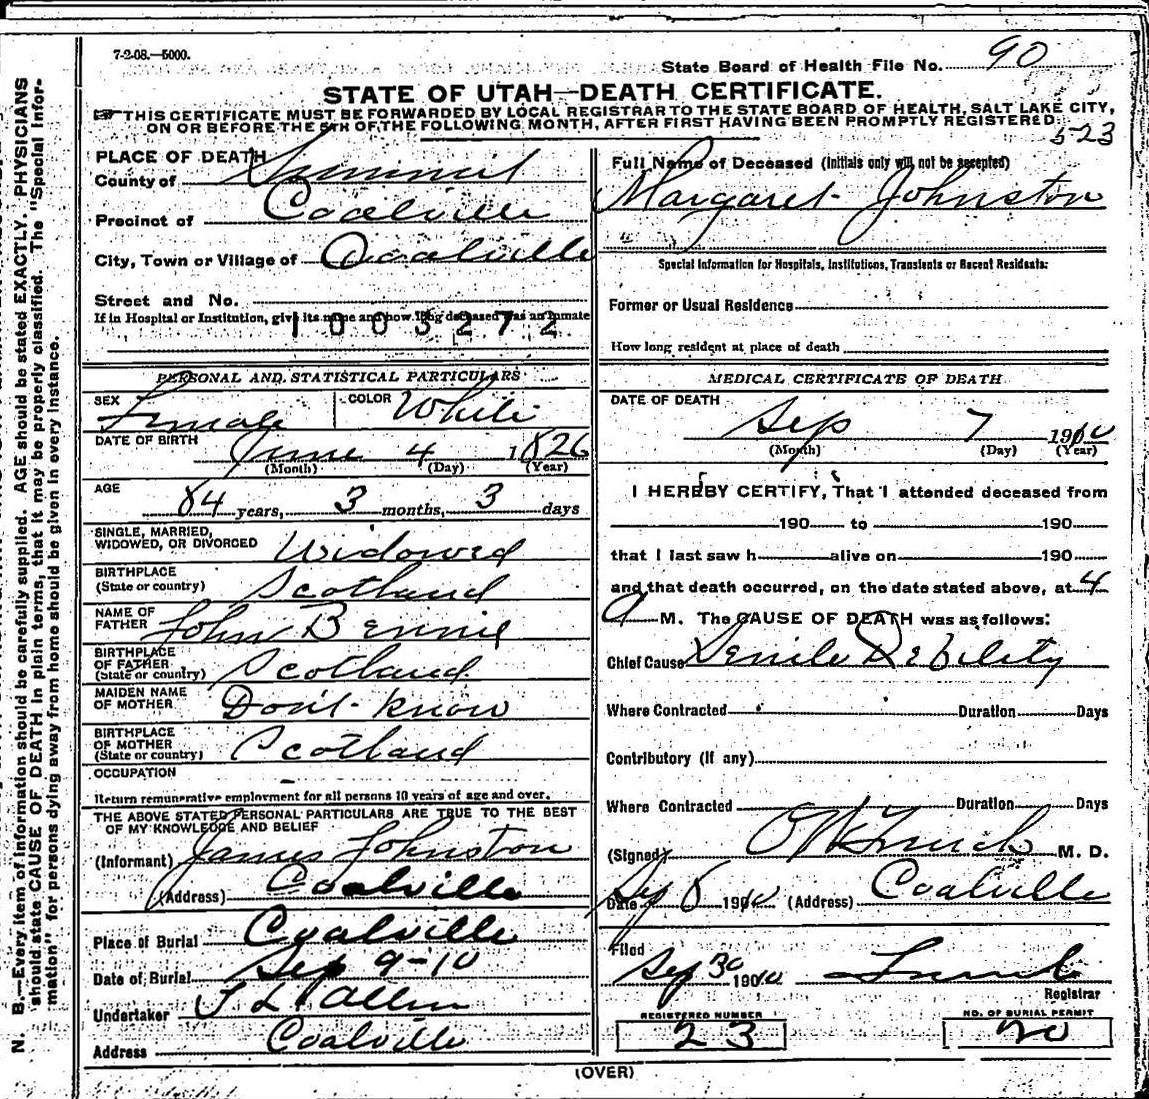 7-2-08.—5000.
State Board of Health File No. 90
STATE OF UTAH—DEATH CERTIFICATE.
THIS CERTIFICATE MUST BE FORWARDED BY LOCAL REGISTRAR TO THE STATE BOARD OF HEALTH, SALT LAKE CITY,
ON OR BEFORE THE 5TH OF THE FOLLOWING MONTH, AFTER FIRST HAVING BEEN PROMPTLY REGISTERED.
523
PLACE OF DEATH
County of Summit
Precinct of Coalville
City, Town or Village of Coalville
Street and No.
If in Hospital or Institution, give its name and how long deceased was an inmate
1003272
PERSONAL AND STATISTICAL PARTICULARS
SEX Female COLOR White
DATE OF BIRTH June 4 1826
(Month) (Day) (Year)
AGE 84 years, 3 months, 3 days
SINGLE, MARRIED,
WIDOWED, OR DIVORCED Widowed
BIRTHPLACE
(State or country) Scotland
NAME OF
FATHER John Bennie
BIRTHPLACE
OF FATHER
(State or country) Scotland
MAIDEN NAME
OF MOTHER Don't know
BIRTHPLACE
OF MOTHER
(State or country) Scotland
OCCUPATION –
Return remunerative employment for all persons 10 years of age and over.
THE ABOVE STATED PERSONAL PARTICULARS ARE TRUE TO THE BEST
OF MY KNOWLEDGE AND BELIEF
(Informant) James Johnston
(Address) Coalville
Place of Burial Coalville
Date of Burial Sep 9-10
Undertaker T L Allen
Address Coalville
Full Name of Deceased (Initials only will not be accepted)
Margaret Johnston
Special Information for Hospitals, Institutions, Transients or Recent Residents:
Former or Usual Residence
How long resident at place of death
MEDICAL CERTIFICATE OF DEATH
DATE OF DEATH
Sep 7 1910
(Month) (Day) (Year)
I HEREBY CERTIFY, That I attended deceased from
190 to 190
that I last saw h alive on 190
and that death occurred, on the date stated above, at 4
a M. The CAUSE OF DEATH was as follows:
Chief Cause Senile Debility
Where Contracted Duration Days
Contributory (If any)
Where Contracted Duration Days
(Signed) M. D.
Date Sep 8 1910 (Address) Coalville
Filed
Sep 30 1910
Registrar
REGISTERED NUMBER
23
NO. OF BURIAL PERMIT
20
(OVER)
N. B.—Every item of information should be carefully supplied. AGE should be stated EXACTLY. PHYSICIANS
should state CAUSE OF DEATH in plain terms, that it may be properly classified. The "Special Infor-
mation" for persons dying away from home should be given in every instance.